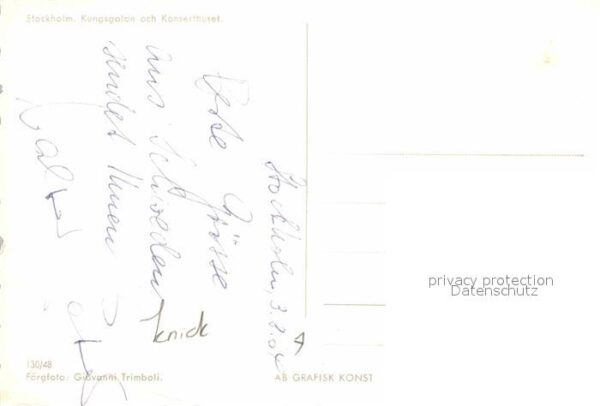 Stockholm. Kungsgatan och Konserthuset.
Stockholm, 3.8.
Grüsse
aus Schweden
sendet Ihnen
knick
privacy protection
Datenschutz
130/48
Färgfoto: Giovanni Trimboli.
AB GRAFISK KONST